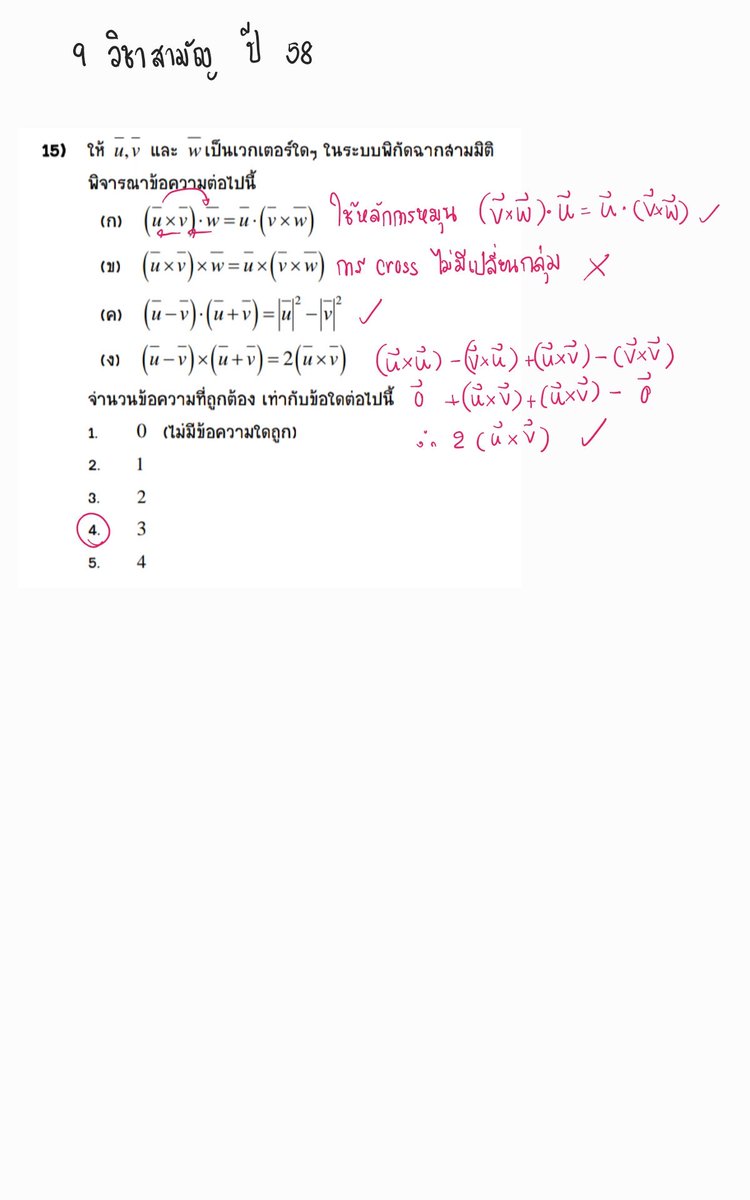 9 วิชาสามัญ ปี 58
15) ให้ u̅, v̅ และ w̅ เป็นเวกเตอร์ใดๆ ในระบบพิกัดฉากสามมิติ
พิจารณาข้อความต่อไปนี้
(ก) (u̅×v̅)·w̅ = u̅·(v̅×w̅) ใช้หลักการหมุน (v⃗×w⃗)·u⃗ = u⃗·(v⃗×w⃗) ✓
(ข) (u̅×v̅)×w̅ = u̅×(v̅×w̅) การ cross ไม่มีเปลี่ยนกลุ่ม ×
(ค) (u̅−v̅)·(u̅+v̅) = |u̅|² − |v̅|² ✓
(ง) (u̅−v̅)×(u̅+v̅) = 2(u̅×v̅) (u⃗×u⃗) − (v⃗×u⃗) + (u⃗×v⃗) − (v⃗×v⃗)
จำนวนข้อความที่ถูกต้อง เท่ากับข้อใดต่อไปนี้ 0⃗ + (u⃗×v⃗) + (u⃗×v⃗) − 0⃗
1. 0 (ไม่มีข้อความใดถูก) ∴ 2 (u⃗×v⃗) ✓
2. 1
3. 2
4. 3
5. 4